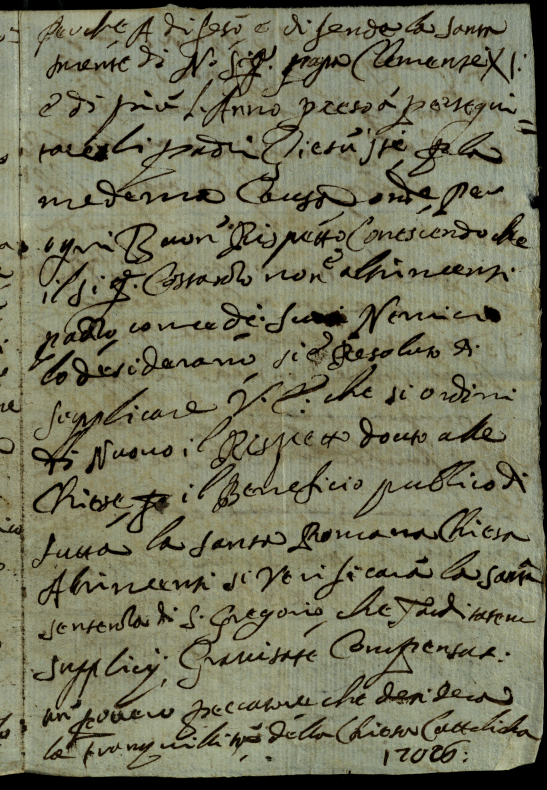 perche A difeso e difende la santa
mente di N. Sig.r papa Clemente XI:
e di più l'Anno preso à persegui=
tare li padri Giesuiti p la
medema Causa onde per
ogni Buon Rispetto Conoscendo che
il Sig. non è altrimenti
come de Suoi Nemici
lo desiderano, si è Resoluto di
supplicare V. E. che si ordini
di Nuovo il Rispetto douto alle
Chiese p il Beneficio publico di
tutta la santa Romana Chiesa
Altrimenti si Verificarà la santa
sentenza di S. Gregorio, che Tarditatem
supplicij, Gravitate Compensat.
un povero peccatore che desidera
la Tranquillità della Chiesa Cattolicha